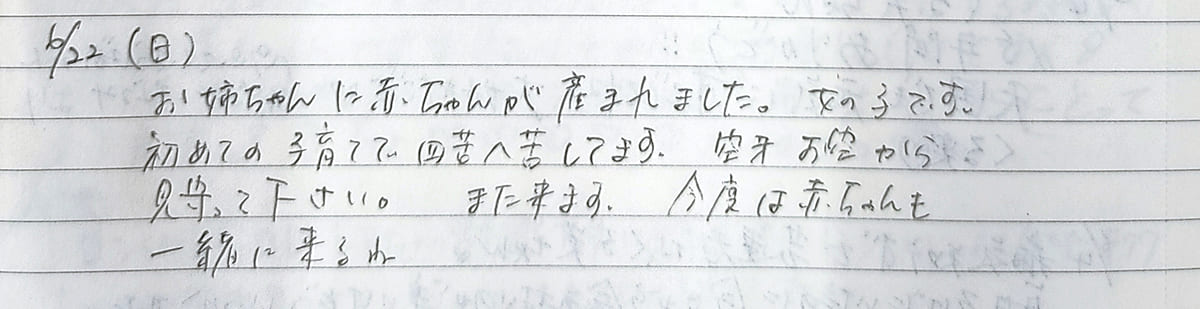 6/22 (日)
お姉ちゃんに赤ちゃんが産まれました。女の子です。
初めての子育てで四苦八苦してます。空牙お空から
見守って下さい。また来ます。今度は赤ちゃんも
一緒に来るね